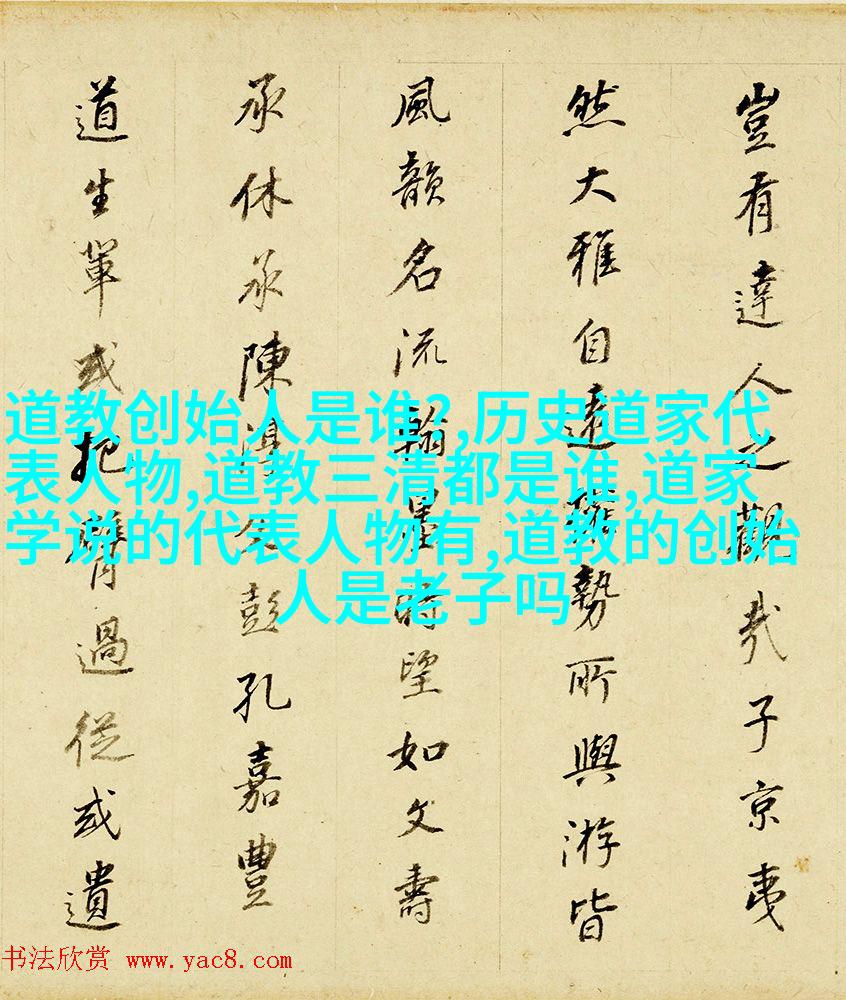 豈有達人之觀哉子京夷
然大雅自遠權勢所與游皆
風韻名流翰墨時望如文壽
承休承陳淳父彭孔嘉豐
道生輩或把臂過從或遺
道教创始人是谁?,历史道家代
表人物,道教三清都是谁,道家
学说的代表人物有,道教的创始
人是老子吗
书法欣赏 www.yac8.com